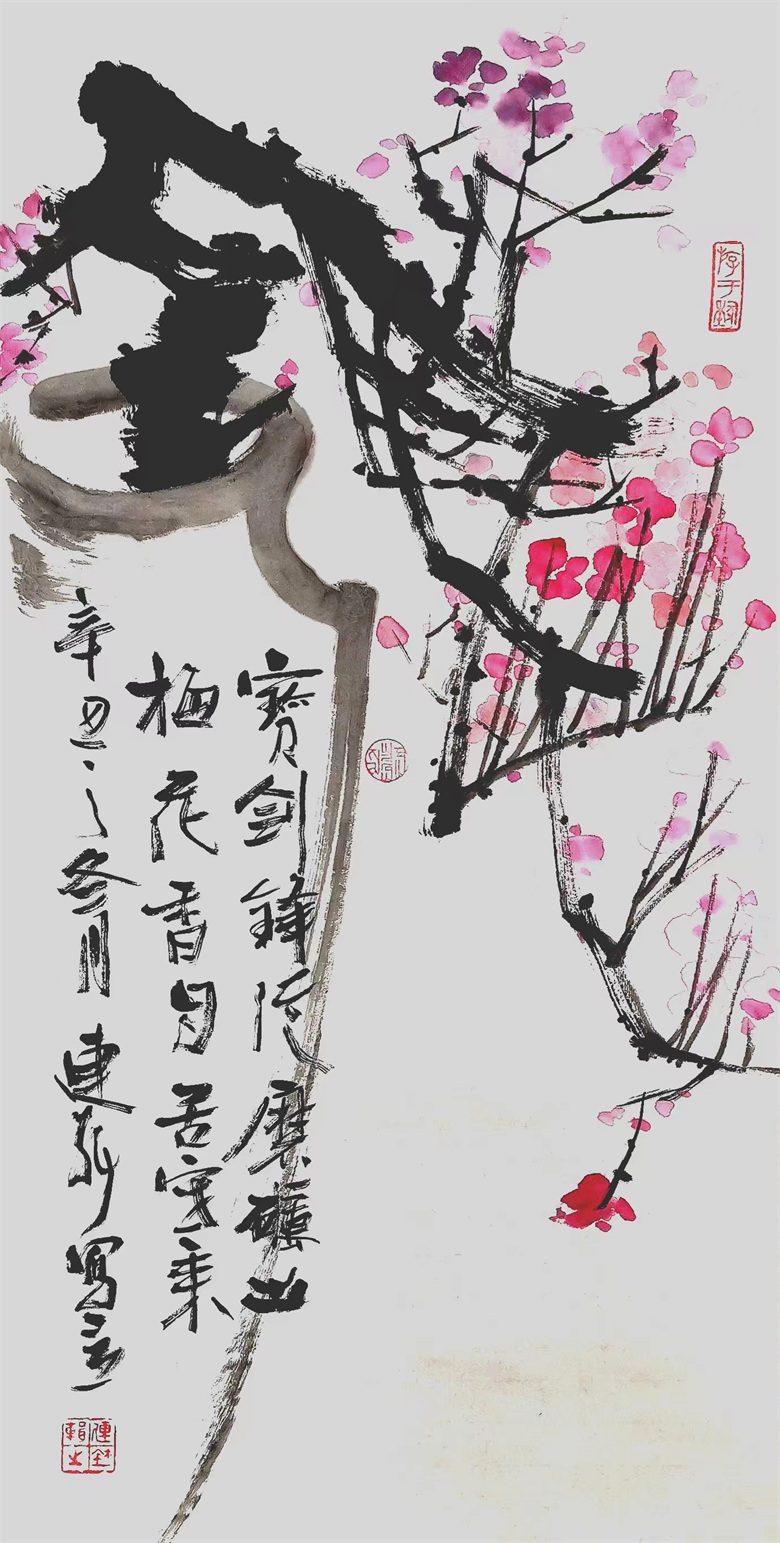 寶劍鋒從磨礪出
梅花香自苦寒來
辛丑之冬月連新寫意